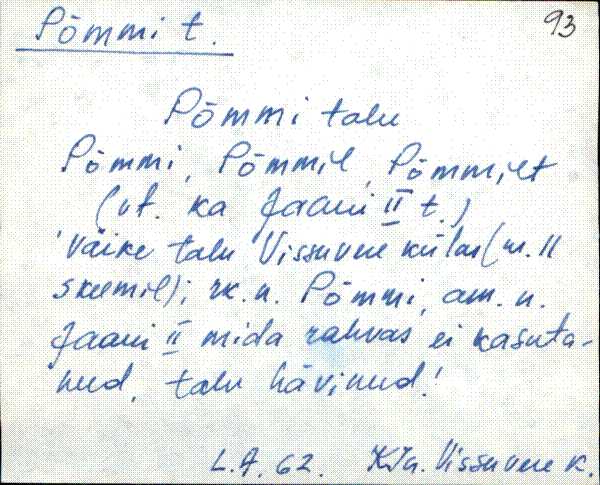 Põmmi t. 93
Põmmi talu
Põmmi, Põmmil, Põmmilt
(vt. ka Jaani II t.)
Väike talu Vissuvere külas (nr. 11
skeemil); rk. n. Põmmi, am. n.
Jaani II mida rahvas ei kasuta-
nud, talu hävinud!
L.A. 62. KJn. Vissuvere k.